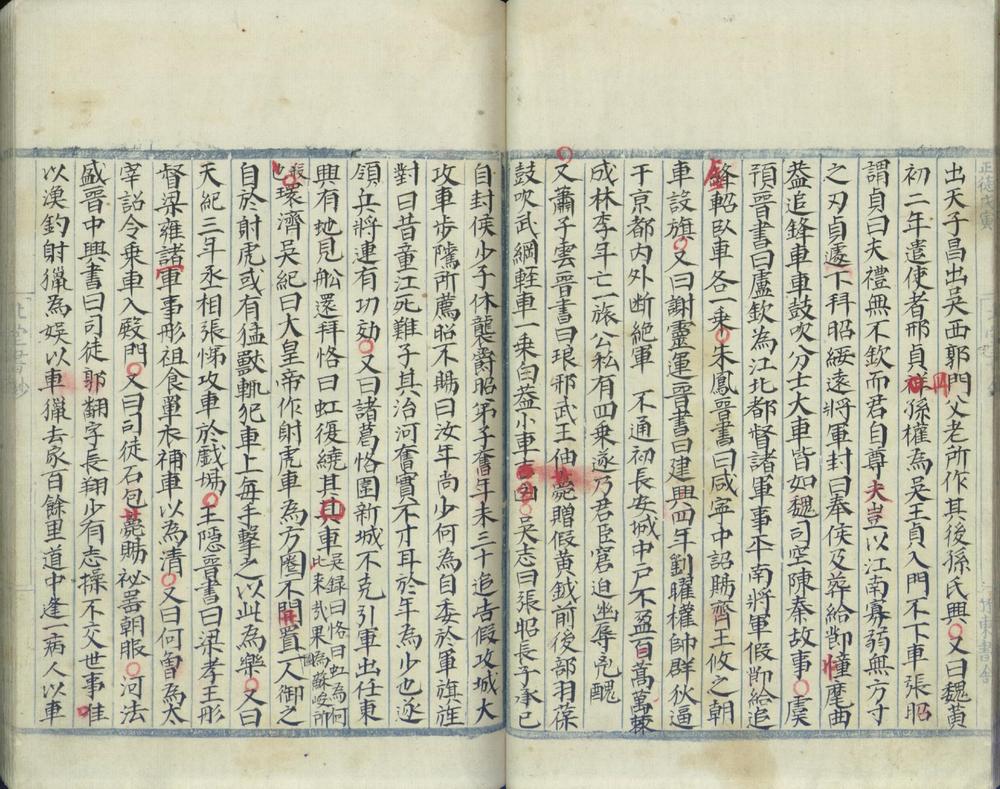 出天子昌出吴西郭門父老所作其後孫氏興又曰魏黃
初二年遣使者邢貞拜孫權為吳王貞入門不下車張昭
謂貞曰夫禮無不欽而君自尊大豈以江南寡弱無方寸
之刃貞遽下拜昭綏遠將軍封曰奉侯及薨給節幢麾西
葢追鋒車車鼓吹分士大車皆如魏司空陳秦故事虞
預晉書曰盧欽為江北都督諸軍事平南將軍假節給追
鋒軺臥車各一乘朱鳳晉書曰咸寜中詔賜齊王攸之朝
車設旗又曰謝靈運晉書曰建興四年劉曜權帥群狄逼
于京都内外断絕軍 不通初長安城中户不盈百萬萬棘
成林李年亡一旅公私有四乘遂乃君臣窘迫幽辱死醜
又蕭子雲晉書曰琅邪武王伷薨贈假黃鉞前後部羽葆
鼓吹武綱輊車一乘白葢小車 吴志曰張昭長子承已
自封侯少子休襲爵昭弟子奮年未三十追告假攻城大
攻車步隲所薦昭不賜曰汝年尚少何為自委於軍旗旌
對曰昔童江死難子其治河奮實不才耳於年為少也遂
領兵將連有功効又曰諸葛恪圍新城不克引軍出任東
興有地見舩還拜恪曰虹復繞其其車吳録曰恪曰虹為何此來哉果為蘇峻所
環濟吴紀曰大皇帝作射虎車為方圈不開置一人御之
自於射虎或有猛獸輒犯車上每手擊之以此為樂又曰
天紀三年丞相張悌攻車於戱塲王隱晉書曰梁孝王彤
督梁雍諸軍事彤祖食單衣補車以為清又曰何曾為太
宰詔令乗車入殿門又曰司徒石包薨賜祕器朝服河法
盛晉中興書曰司徒郭翻字長翔少有志操不交世事唯
以漁釣射獵為娱以車獵去家百餘里道中逢一病人以車